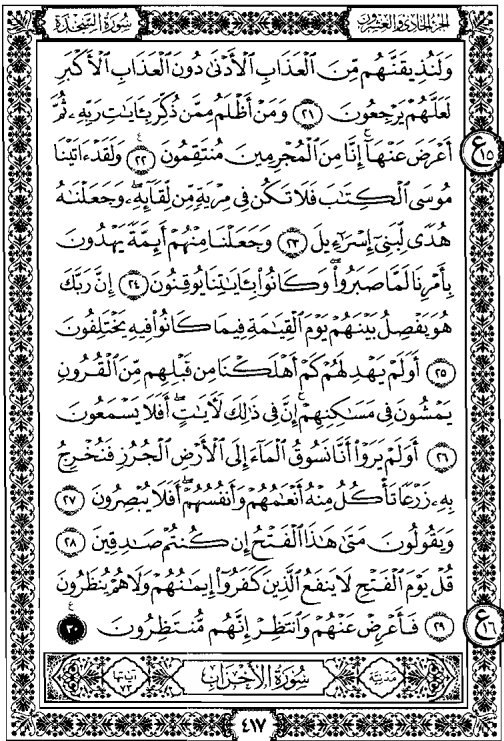 الجزء الحادي والعشرون سُورَةُ السَّجْدَةِ
وَلَنُذِيقَنَّهُم مِّنَ ٱلْعَذَابِ ٱلْأَدْنَىٰ دُونَ ٱلْعَذَابِ ٱلْأَكْبَرِ
لَعَلَّهُمْ يَرْجِعُونَ ٢١ وَمَنْ أَظْلَمُ مِمَّن ذُكِّرَ بِـَٔايَٰتِ رَبِّهِۦ ثُمَّ
أَعْرَضَ عَنْهَآ ۚ إِنَّا مِنَ ٱلْمُجْرِمِينَ مُنتَقِمُونَ ٢٢ وَلَقَدْ ءَاتَيْنَا ع ١٥
مُوسَى ٱلْكِتَٰبَ فَلَا تَكُن فِى مِرْيَةٍ مِّن لِّقَآئِهِۦ ۖ وَجَعَلْنَٰهُ
هُدًى لِّبَنِىٓ إِسْرَٰٓءِيلَ ٢٣ وَجَعَلْنَا مِنْهُمْ أَئِمَّةً يَهْدُونَ
بِأَمْرِنَا لَمَّا صَبَرُوا۟ ۖ وَكَانُوا۟ بِـَٔايَٰتِنَا يُوقِنُونَ ٢٤ إِنَّ رَبَّكَ
هُوَ يَفْصِلُ بَيْنَهُمْ يَوْمَ ٱلْقِيَٰمَةِ فِيمَا كَانُوا۟ فِيهِ يَخْتَلِفُونَ
٢٥ أَوَلَمْ يَهْدِ لَهُمْ كَمْ أَهْلَكْنَا مِن قَبْلِهِم مِّنَ ٱلْقُرُونِ
يَمْشُونَ فِى مَسَٰكِنِهِمْ ۚ إِنَّ فِى ذَٰلِكَ لَـَٔايَٰتٍ ۖ أَفَلَا يَسْمَعُونَ
٢٦ أَوَلَمْ يَرَوْا۟ أَنَّا نَسُوقُ ٱلْمَآءَ إِلَى ٱلْأَرْضِ ٱلْجُرُزِ فَنُخْرِجُ
بِهِۦ زَرْعًا تَأْكُلُ مِنْهُ أَنْعَٰمُهُمْ وَأَنفُسُهُمْ ۖ أَفَلَا يُبْصِرُونَ ٢٧
وَيَقُولُونَ مَتَىٰ هَٰذَا ٱلْفَتْحُ إِن كُنتُمْ صَٰدِقِينَ ٢٨
قُلْ يَوْمَ ٱلْفَتْحِ لَا يَنفَعُ ٱلَّذِينَ كَفَرُوٓا۟ إِيمَٰنُهُمْ وَلَا هُمْ يُنظَرُونَ
٢٩ فَأَعْرِضْ عَنْهُمْ وَٱنتَظِرْ إِنَّهُم مُّنتَظِرُونَ ٣٠ ع ١٦
مدنية سُورَةُ الأَحْزَابِ آياتها ٧٣
٤١٧